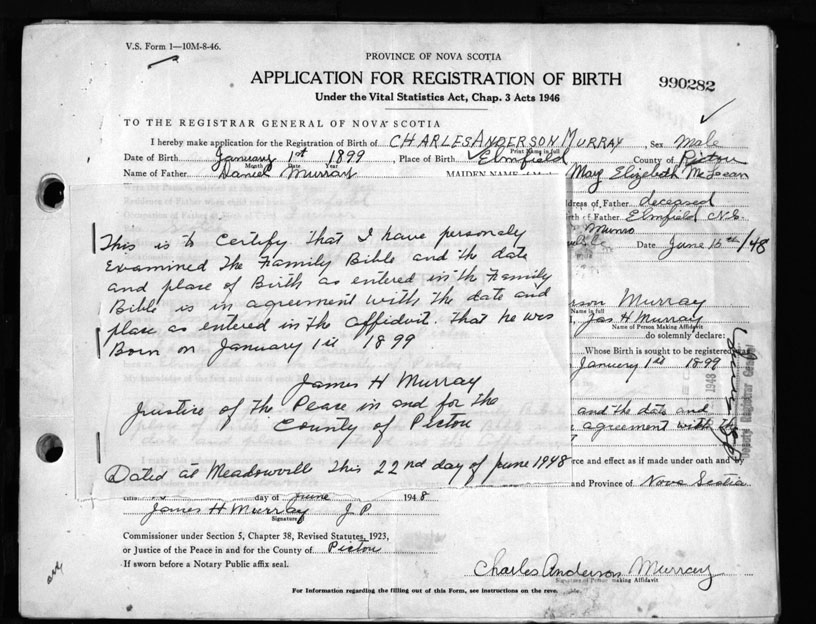 V.S. Form 1—10M-8-46.
PROVINCE OF NOVA SCOTIA
APPLICATION FOR REGISTRATION OF BIRTH
990282
Under the Vital Statistics Act, Chap. 3 Acts 1946
TO THE REGISTRAR GENERAL OF NOVA SCOTIA
I hereby make application for the Registration of Birth of CHARLES ANDERSON MURRAY, Sex Male
Print Name in full
Date of Birth January 1st 1899, Place of Birth Elmfield County of Pictou
Month Date Year
Name of Father Daniel Murray MAIDEN NAME Mary Elizabeth McLean
Address of Father deceased
of Father Elmfield N.S.
Munro
Date June 15th/48
This is to Certify that I have personely
Examined the Family Bible and the date
and place of Birth as entered in the Family
Bible is in agreement with the date and
place as entered in the affidavit. that he was
Born on January 1st 1899
James H Murray
Justice of the Peace in and for the
County of Pictou
Dated at Meadowvill this 22nd day of June 1948
rson Murray
Name in full
Jas. H Murray
Name of Person Making Affidavit
do solemnly declare:
Whose Birth is sought to be registered
January 1st 1899
1948
Deputy Registrar General
and the date and
agreement with the
rce and effect as if made under oath and by
and Province of Nova Scotia
day of June 1948
James H Murray J P
Signature
Commissioner under Section 5, Chapter 38, Revised Statutes, 1923,
or Justice of the Peace in and for the County of Pictou
If sworn before a Notary Public affix seal.
Charles Anderson Murray
Signature of Person making Affidavit
For Information regarding the filling out of this Form, see instructions on the reve